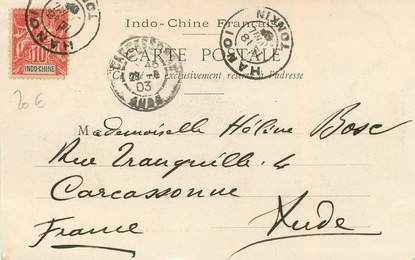 Indo-Chine Française
CARTE POSTALE
Ce côté exclusivement réservé à l'adresse
HANOI TONKIN
10
INDO-CHINE
HANOI TONKIN
CARCASSONNE
03
AUDE
206
Mademoiselle Hélène Bosc
Rue Tranquille 4
Carcassonne
France Aude